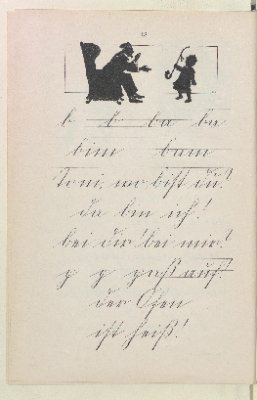 b b ba bu
bim bam
Toni, wo bist du?
da bin ich!
bei dir! bei mir?
p p paßt auf!
der Ofen
ist heiß!